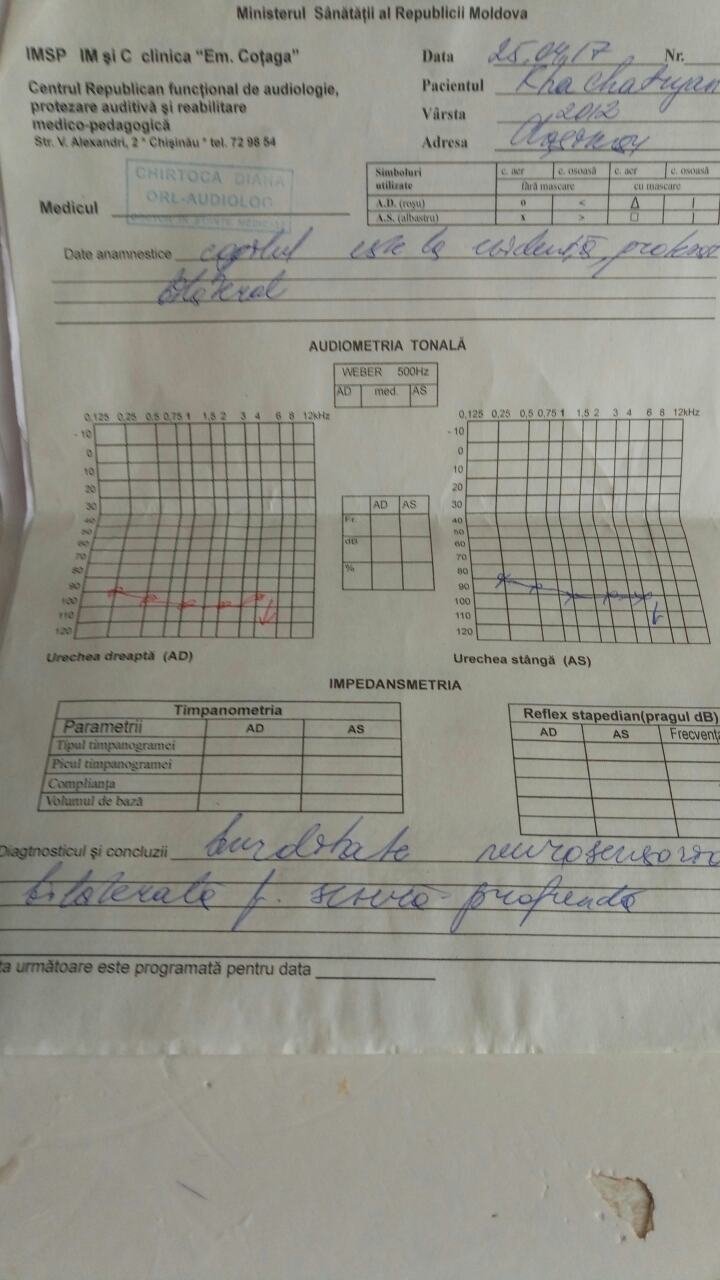 Ministerul Sănătății al Republicii Moldova
IMSP IM și C clinica “Em. Coțaga”
Data 25.04.17 Nr.
Centrul Republican funcțional de audiologie,
protezare auditivă și reabilitare
medico-pedagogică
Str. V. Alexandri, 2 * Chișinău * tel. 72 98 54
Pacientul Khachatryan
Vârsta 2012
Adresa
CHIRTOCA DIANA
ORL-AUDIOLOG
Medicul
Simboluri utilizate c. aer c. osoasă c. aer c. osoasă
fără mascare cu mascare
A.D. (roșu) o < Δ
A.S. (albastru) x > □
Date anamnestice copilul este la evidență,
bilateral
AUDIOMETRIA TONALĂ
WEBER 500Hz
AD med. AS
0,125 0,25 0,5 0,75 1 1,5 2 3 4 6 8 12kHz
- 10
0
10
20
30
40
50
60
70
80
90
100
110
120
Urechea dreaptă (AD)
AD AS
Fr.
dB
%
0,125 0,25 0,5 0,75 1 1,5 2 3 4 6 8 12kHz
- 10
0
10
20
30
40
50
60
70
80
90
100
110
120
Urechea stângă (AS)
IMPEDANSMETRIA
Timpanometria
Parametrii AD AS
Tipul timpanogramei
Picul timpanogramei
Complianța
Volumul de bază
Reflex stapedian(pragul dB)
AD AS Frecvența
Diagtnosticul și concluzii surditate neurosensorio
bilaterală severă-profundă
ta următoare este programată pentru data